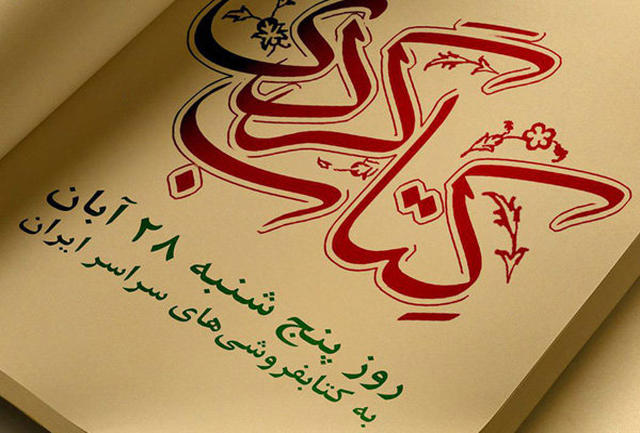 کتابگردی
روز پنج شنبه ۲۸ آبان
به کتابفروشی‌های سراسر ایران